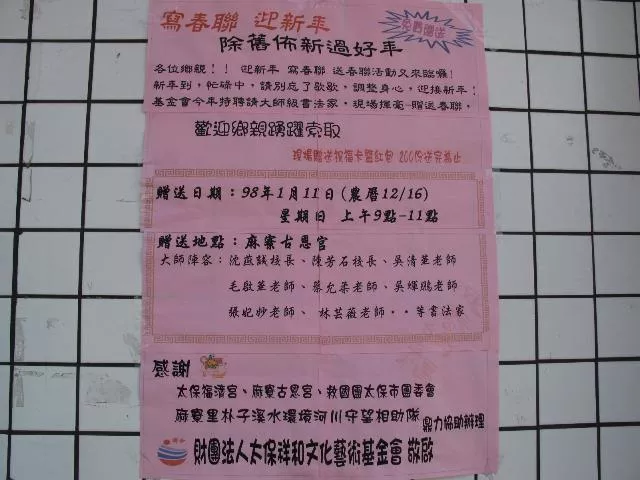 寫春聯 迎新年
免費贈送
除舊佈新過好年
各位鄉親！！ 迎新年 寫春聯 送春聯活動又來臨囉！
新年到，忙碌中，請別忘了歇歇，調整身心，迎接新年！
基金會今年特聘請大師級書法家，現場揮毫-贈送春聯，
歡迎鄉親踴躍索取
現場贈送祝福卡暨紅包 200份送完為止
贈送日期：98年1月11日(農曆12/16)
星期日 上午9點-11點
贈送地點：麻寮古恩宮
大師陣容：沈燕誠校長、陳芳石校長、吳清華老師
毛啟華老師、蔡允棻老師、吳輝鵬老師
張妃妙老師、林芸薇老師‧‧等書法家
感謝
太保福濟宮、麻寮古恩宮、救國團太保市團委會
麻寮里朴子溪水環境河川守望相助隊 鼎力協助辦理
財團法人太保祥和文化藝術基金會 敬啟